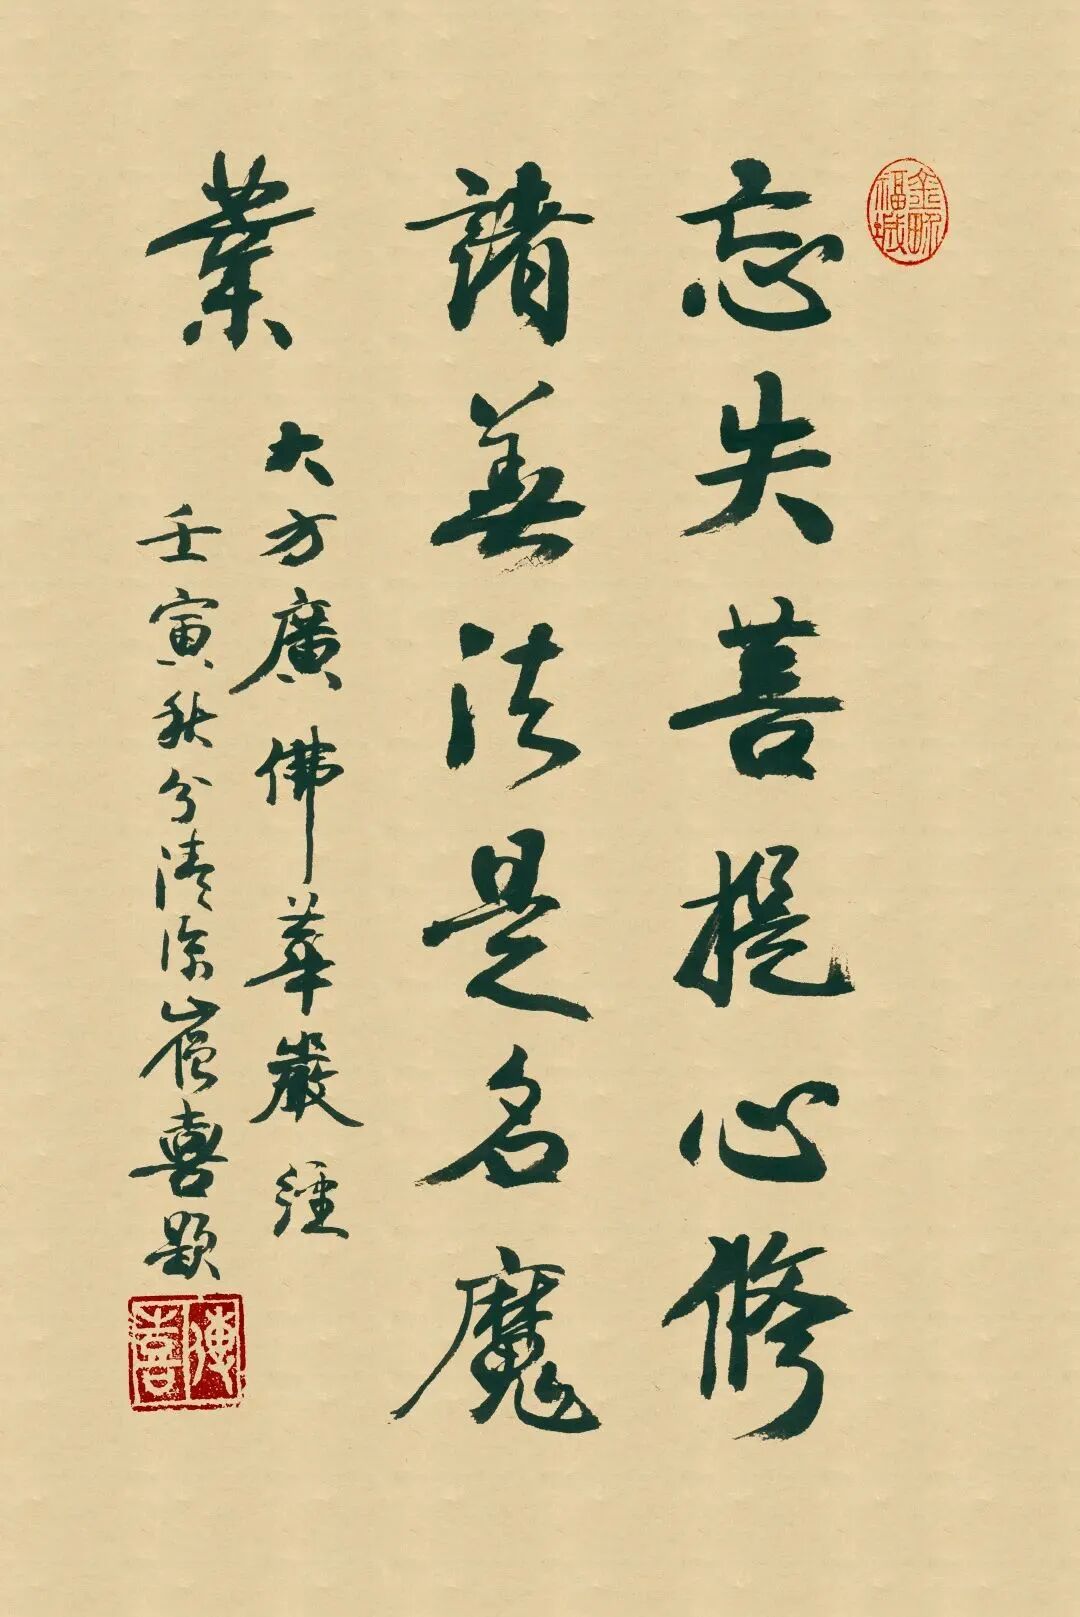 忘失菩提心修
諸善法是名魔
業
大方廣佛華嚴經
壬寅秋分清涼喜題
福城
喜